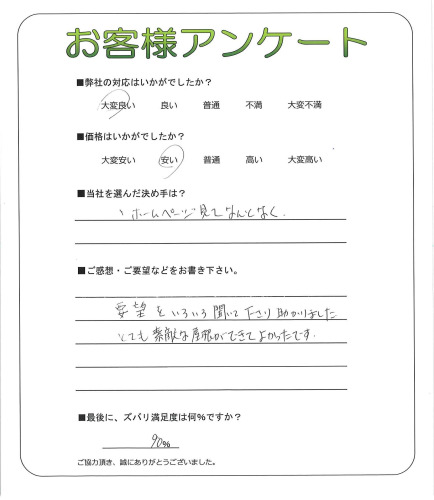 お客様アンケート
■弊社の対応はいかがでしたか？
大変良い 良い 普通 不満 大変不満
■価格はいかがでしたか？
大変安い 安い 普通 高い 大変高い
■当社を選んだ決め手は？
、ホームページ見てなんとなく.
■ご感想・ご要望などをお書き下さい。
要望をいろいろ聞いて下さり助かりました
とても素敵な屋根ができてよかったです.
■最後に、ズバリ満足度は何％ですか？
90％
ご協力頂き、誠にありがとうございました。